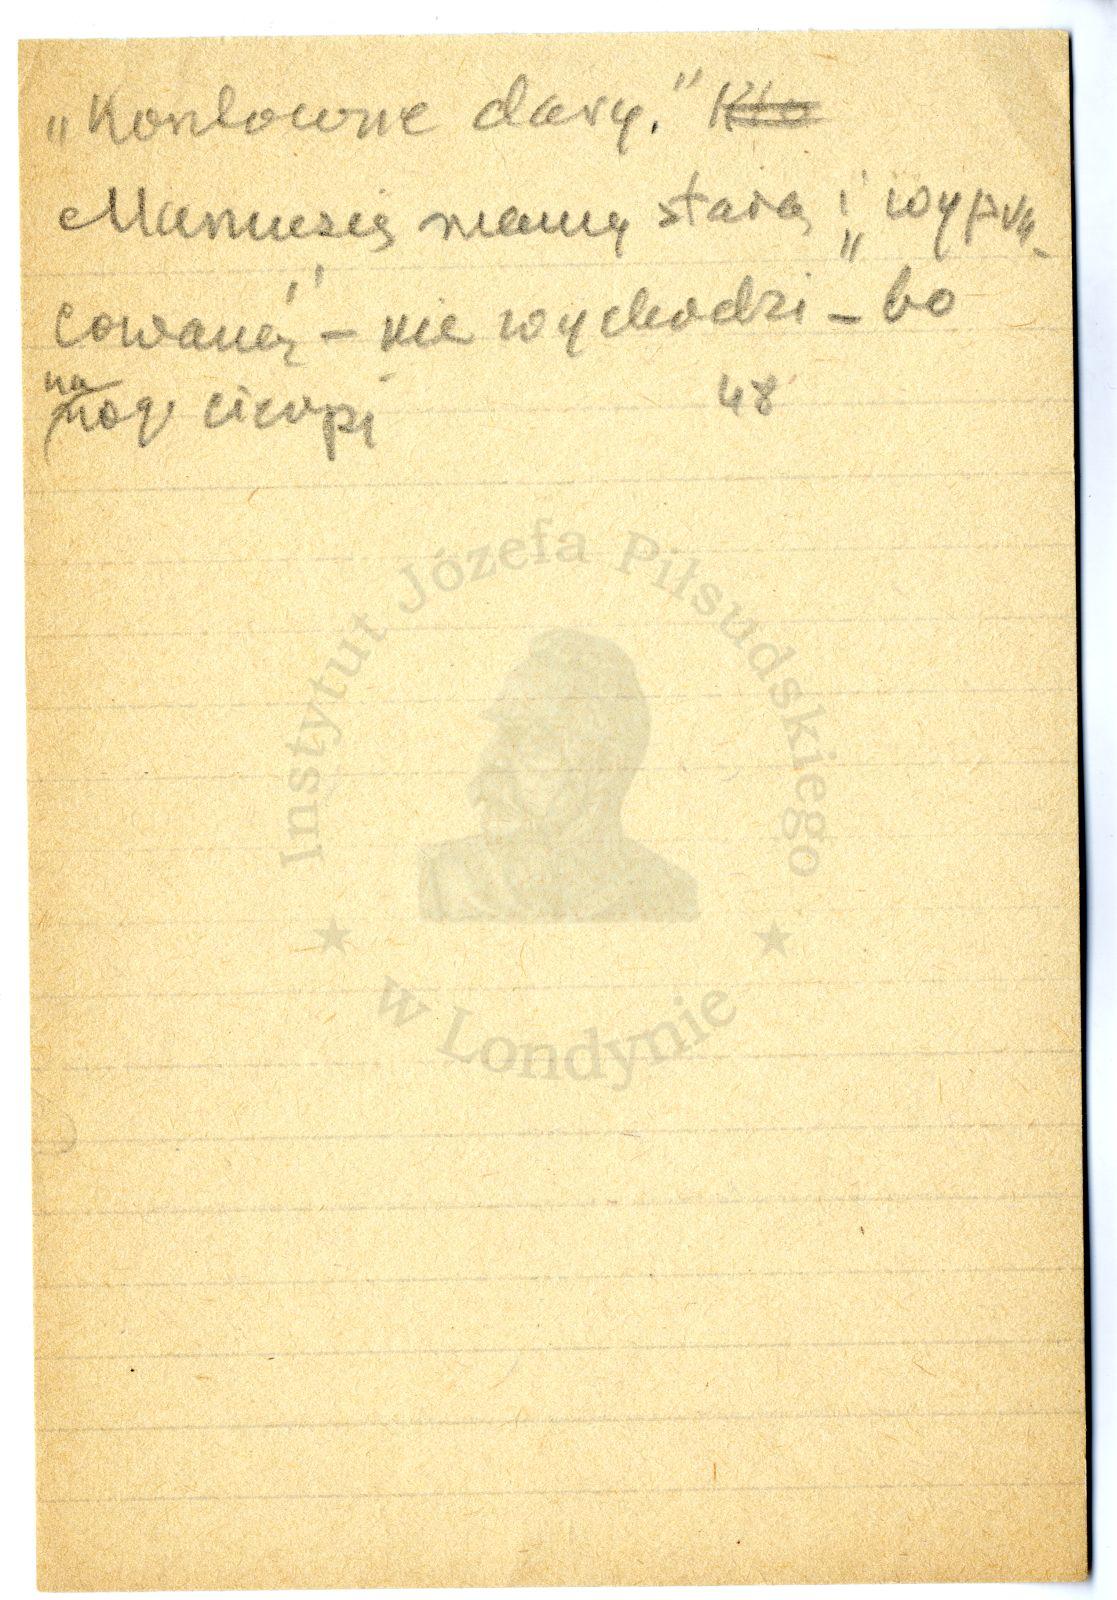 „Kosztowne dary." Kto
Mamusię mamy starą i „wypra-
cowaną" – nie wychodzi – bo
na
nogi cierpi 48
Instytut Józefa Piłsudskiego
w Londynie